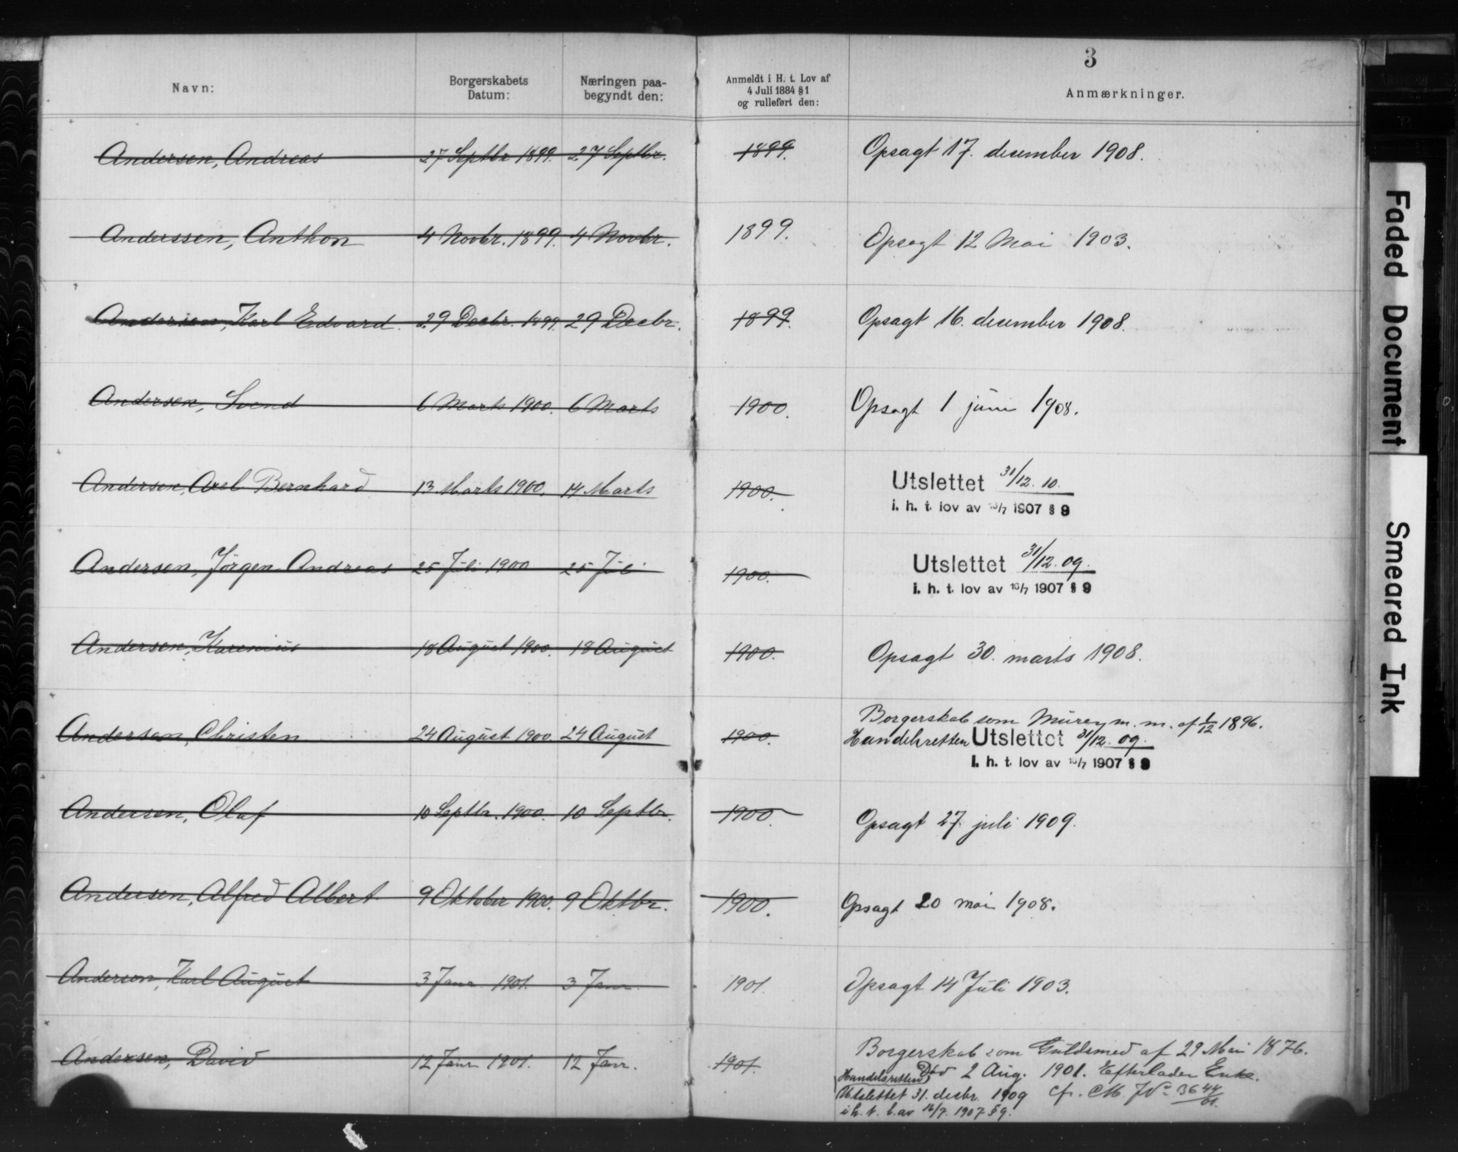 3
Navn: Borgerskabets Datum: Næringen paabegyndt den: Anmeldt i H. t. Lov af 4 Juli 1884 § 1 og rulleført den: Anmærkninger.
Andersen, Andreas 27 Septbr 1899. 27 Septbr. 1899. Opsagt 17. december 1908.
Anderssen, Anthon 4 Novbr. 1899. 4 Novbr. 1899. Opsagt 12 Mai 1903.
Andersen, Karl Edvard 29 Decbr. 1899. 29 Decbr. 1899. Opsagt 16. december 1908.
Andersen, Svend 6 Marts 1900. 6 Marts 1900. Opsagt 1 juni 1908.
Andersen, Axel Bernhard 13 Marts 1900. 14 Marts 1900. Utslettet 31/12. 10.
i. h. t. lov av 16/7 1907 § 9
Andersen, Jørgen Andreas 25 Juli 1900 25 Juli 1900. Utslettet 31/12. 09.
i. h. t. lov av 16/7 1907 § 9
Andersen, Karenius 18 August 1900. 18 August 1900. Opsagt 30. marts 1908.
Andersen, Christen 24 August 1900. 24 August 1900. Borgerskab som Murer m. m. af 1/12 1896.
Handelsretten Utslettet 31/12. 09.
i. h. t. lov av 16/7 1907 § 9
Andersen, Olaf 10 Septbr. 1900. 10 Septbr. 1900. Opsagt 27. juli 1909.
Andersen, Alfred Albert 9 Oktober 1900. 9 Oktbr. 1900. Opsagt 20 mai 1908.
Anderson, Karl August 3 Janr 1901. 3 Janr 1901. Opsagt 14 Juli 1903.
Andersen, David 12 Janr 1901. 12 Janr. 1901. Borgerskab som Guldsmed af 29 Mai 1876.
Død 2 Aug. 1901. Efterlader Enke.
Handelsretten
Utslettet 31. decbr. 1909 cfr. No 3644/01.
i h. t. l. av 16/7. 1907 § 9.
Faded Document
Smeared Ink